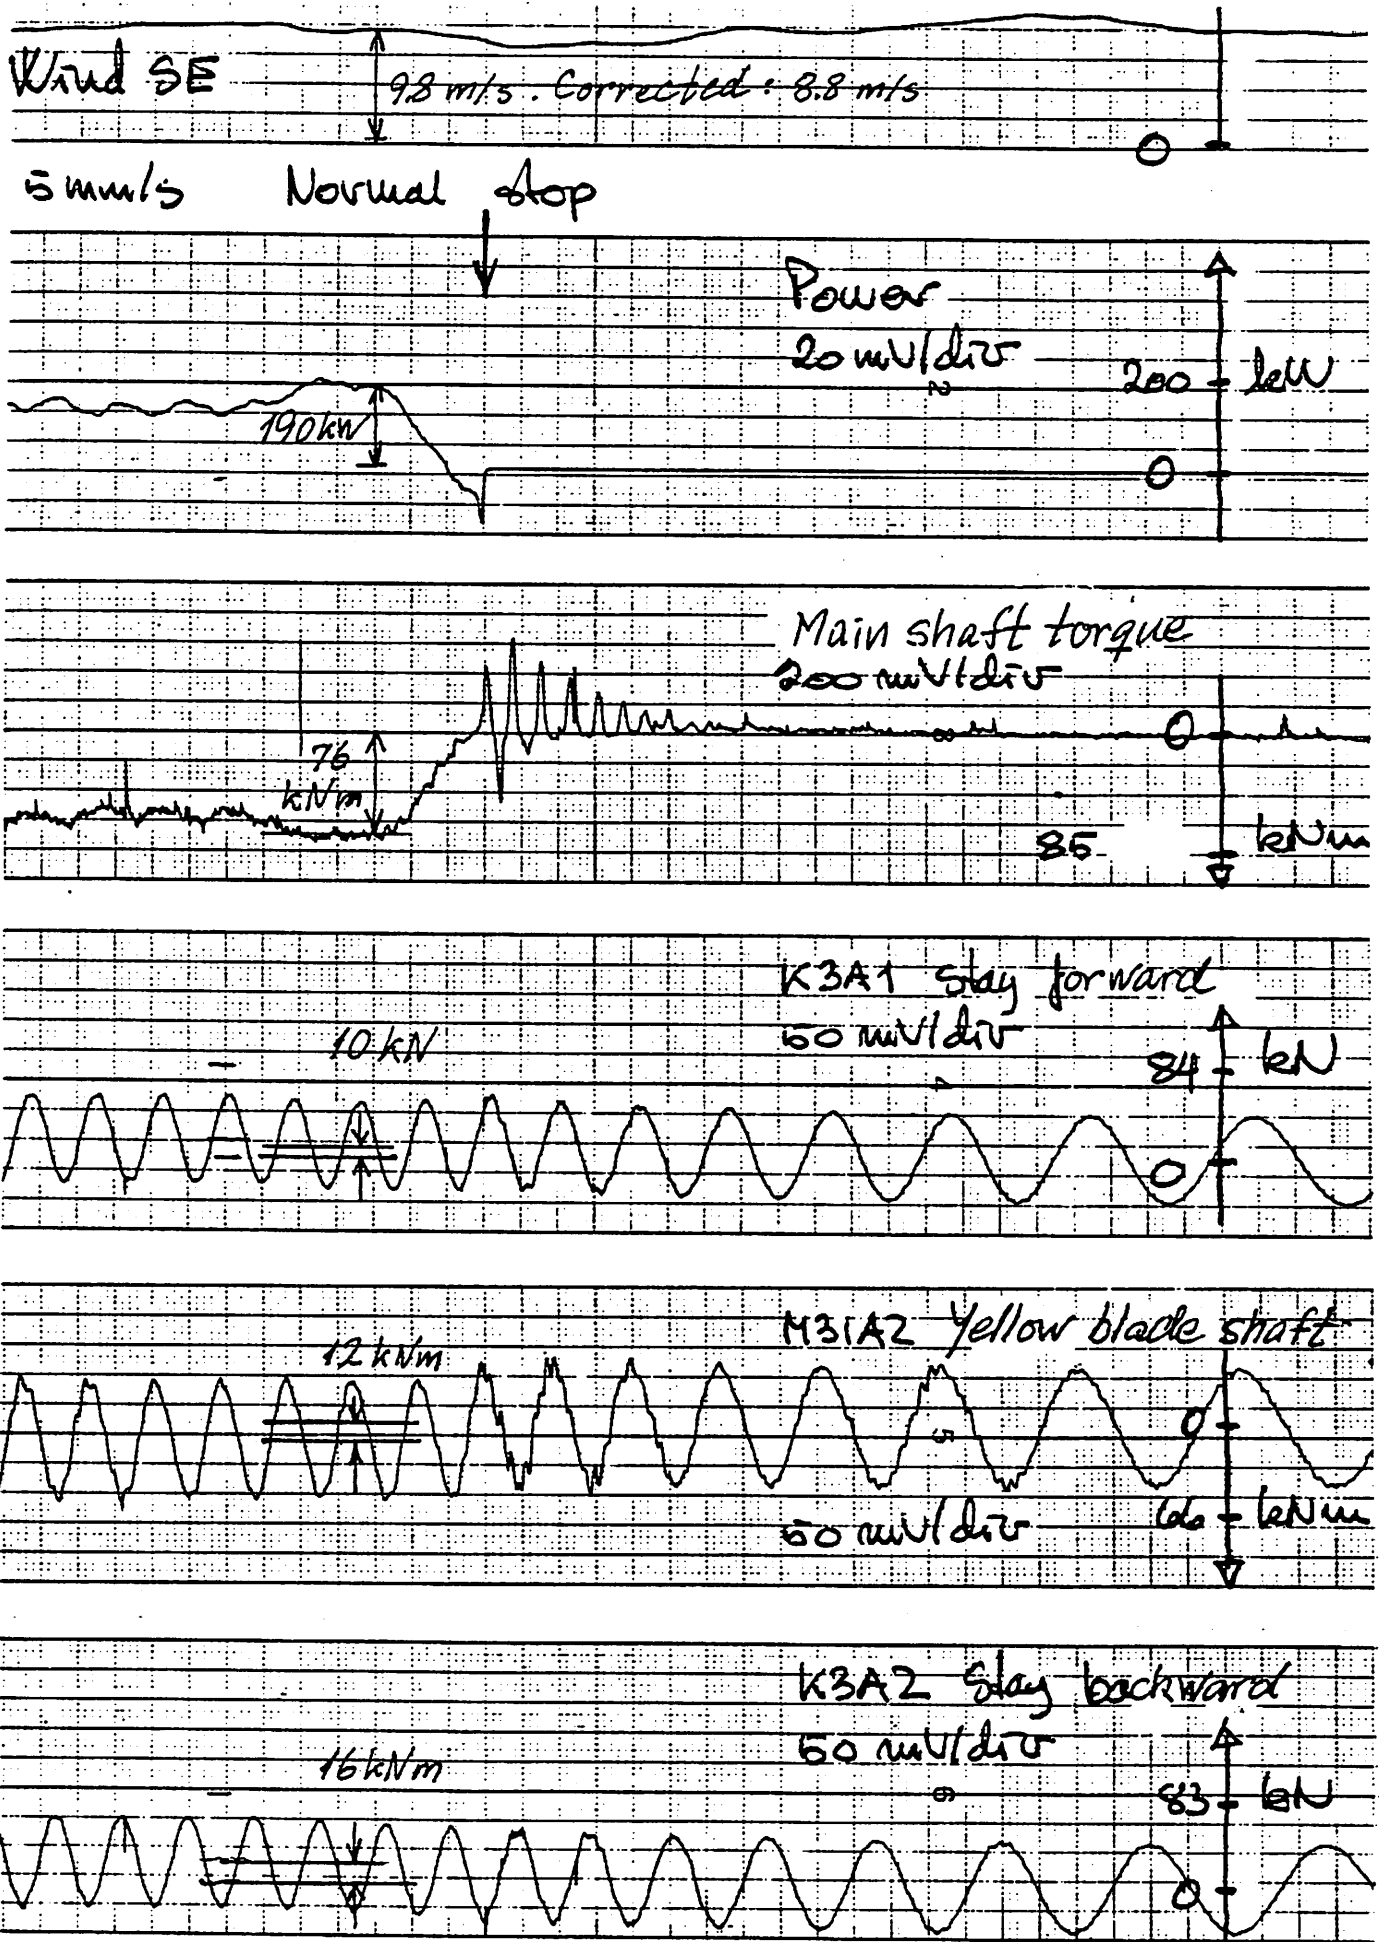 Wind SE
9.8 m/s. Corrected: 8.8 m/s
0
5 mm/s Normal stop
Power
20 mV/div
2
200 kW
190 kW
0
Main shaft torque
200 mV/div
0
8
76
kNm
85 kNm
K3A1 Stay forward
50 mV/div
10 kN
84 kN
4
0
M31A2 Yellow blade shaft
12 kNm
0
5
50 mV/div
66 kNm
K3A2 Stay backward
50 mV/div
16 kNm
6
83 kN
0